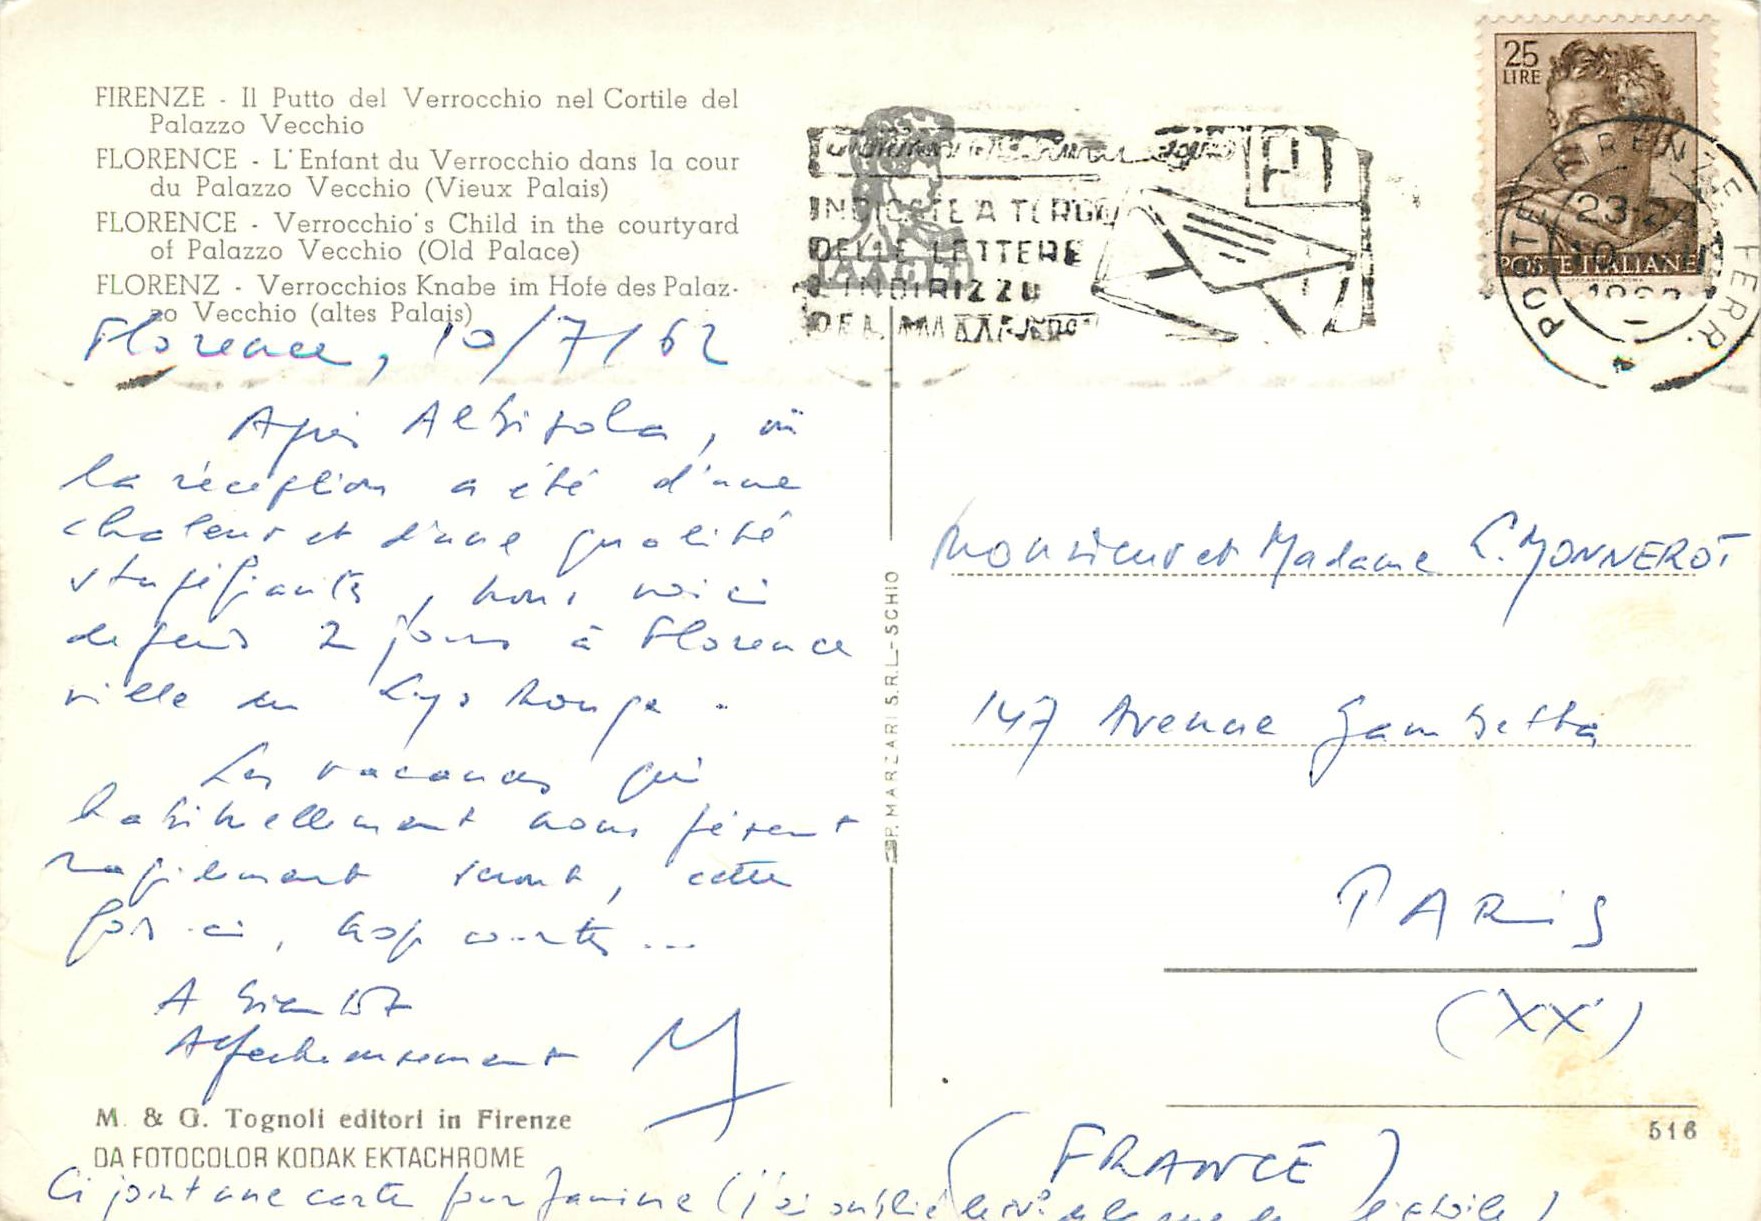 FIRENZE - Il Putto del Verrocchio nel Cortile del
Palazzo Vecchio
FLORENCE - L'Enfant du Verrocchio dans la cour
du Palazzo Vecchio (Vieux Palais)
FLORENCE - Verrocchio's Child in the courtyard
of Palazzo Vecchio (Old Palace)
FLORENZ - Verrocchios Knabe im Hofe des Palaz-
zo Vecchio (altes Palais)
Florence, 10/7/62
Après Albisola, où
la réception a été d'une
chaleur et d'une qualité
stupéfiantes, nous voici
depuis 2 jours à Florence
ville du Lys Rouge.
Les vacances qui
habituellement nous pèsent
rapidement seront, cette
fois-ci, trop courtes...
A bientôt
Affectueusement
M. & G. Tognoli editori in Firenze
DA FOTOCOLOR KODAK EKTACHROME
Ci joint une carte pour Janine (j'ai oublié le N° de la rue de
P. MARZARI S.R.L. - SCHIO
INDICATE A TERGO
DELLE LETTERE
L'INDIRIZZO
DEL
25
LIRE
POSTE ITALIANE
POSTE FIRENZE FERR.
23-24
10
1962
Monsieur et Madame L. MONNEROT
147 Avenue Gambetta
PARIS
(XX)
516
(FRANCE)